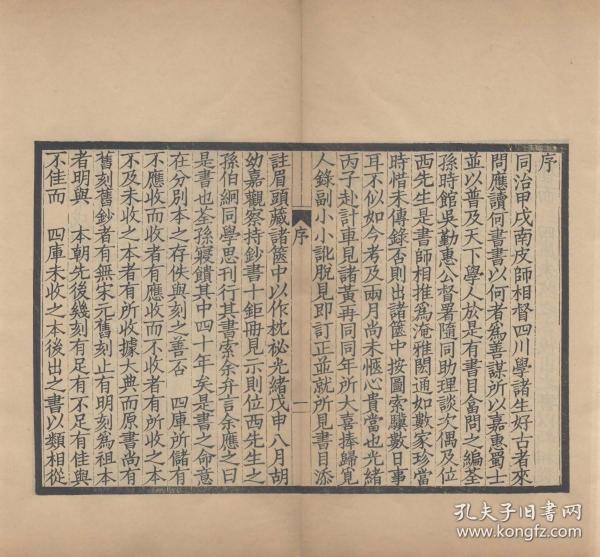 序
同治甲戌南皮師相督四川學諸生好古者來
問應讀何書書以何者爲善謀所以嘉惠蜀士
並以普及天下學人於是有書目畣問之編荃
孫時館吳勤惠公督署隨同助理談次偶及位
西先生是書師相推爲淹雅閎通如數家珍當
時惜未傳錄否則出諸篋中按圖索驥數日事
耳不似如今考及兩月尚未愜心貴當也光緒
丙子赴計車見諸黃再同同年所大喜捧歸覓
人錄副小小訛脫見即訂正並就所見書目添
序
一
註眉頭藏諸篋中以作枕祕光緒戊申八月胡
幼嘉觀察持鈔書十鉅冊見示則位西先生之
孫伯絅同學思刊行其書索余弁言余應之曰
是書也荃孫寢饋其中四十年矣是書之命意
在分別本之存佚與刻之善否　四庫所儲有
不應收而收者有應收而不收者有所收之本
不及未收之本者有所收據大典而原書尚有
舊刻舊鈔者有無宋元舊刻止有明刻爲祖本
者明與　本朝先後幾刻有足有不足有佳與
不佳而　四庫未收之本後出之書以類相從
孔夫子旧书网
www.kongfz.com